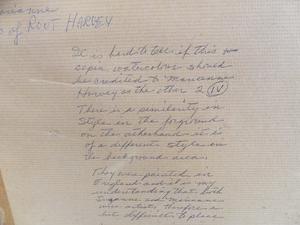 of ROOT HARVEY
It is hard to tell if this
sepia watercolour should
be credited to Marianne
Harvey as the other 2 (IV)
There is a similarity in
style in the forground
on the otherhand it is
of a different style in
the background area.
They were painted in
England and it is my
understanding that both
Suzanne and Marianne
were artists, therefore a
bit difficult to place